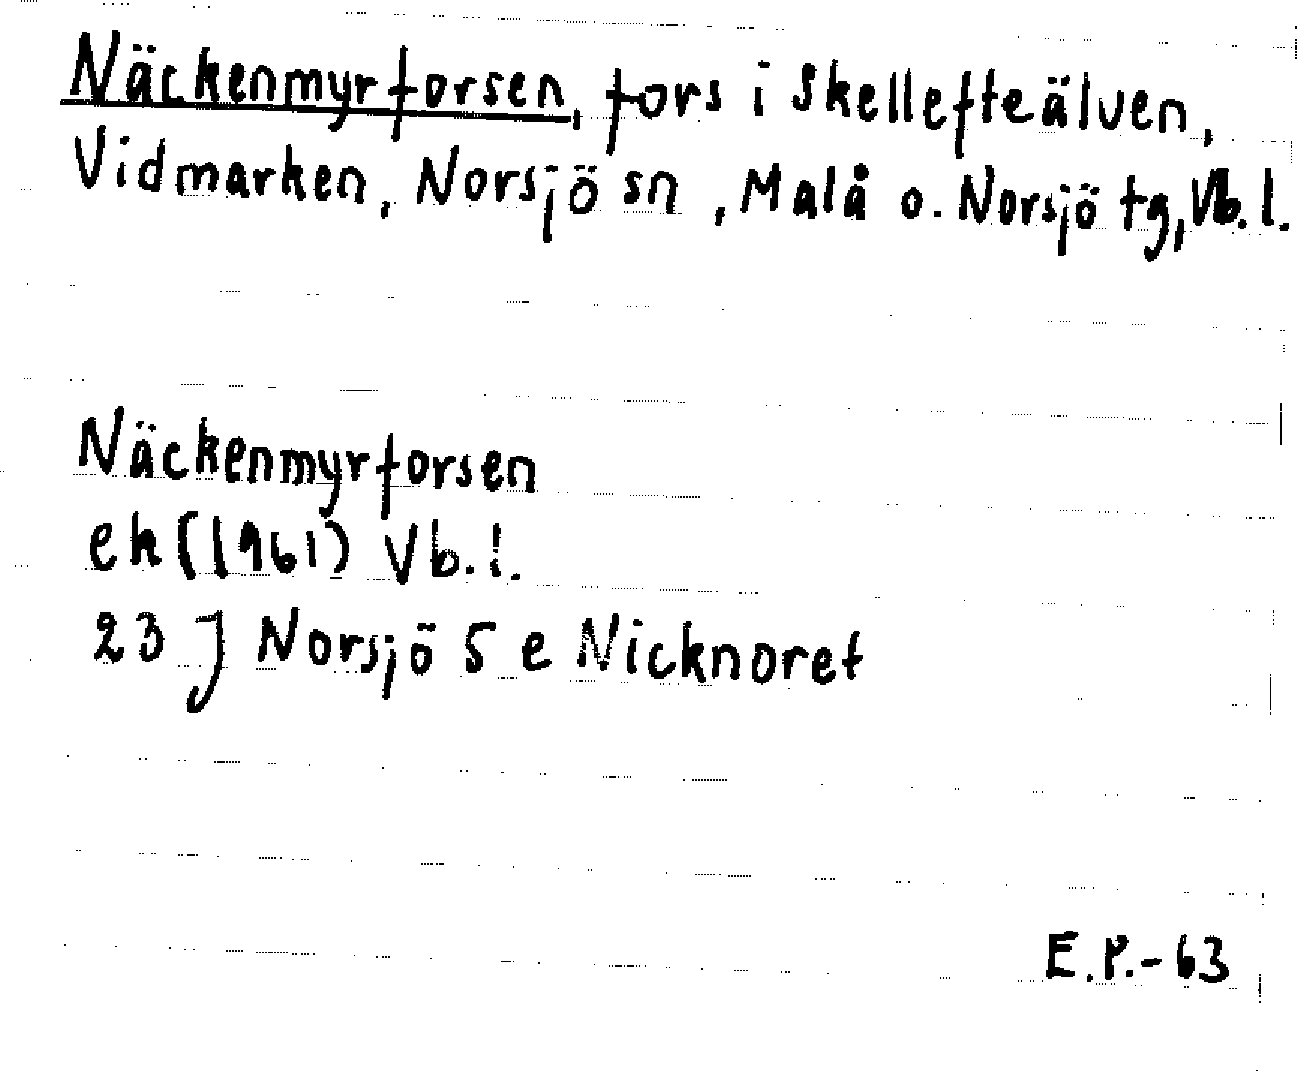 Näckenmyrforsen, fors i Skellefteälven,
Vidmarken, Norsjö sn, Malå o. Norsjö tg, Vb. l.
Näckenmyrforsen
ek (1961) Vb. l.
23 J Norsjö 5 e Nicknoret
E.P.-63